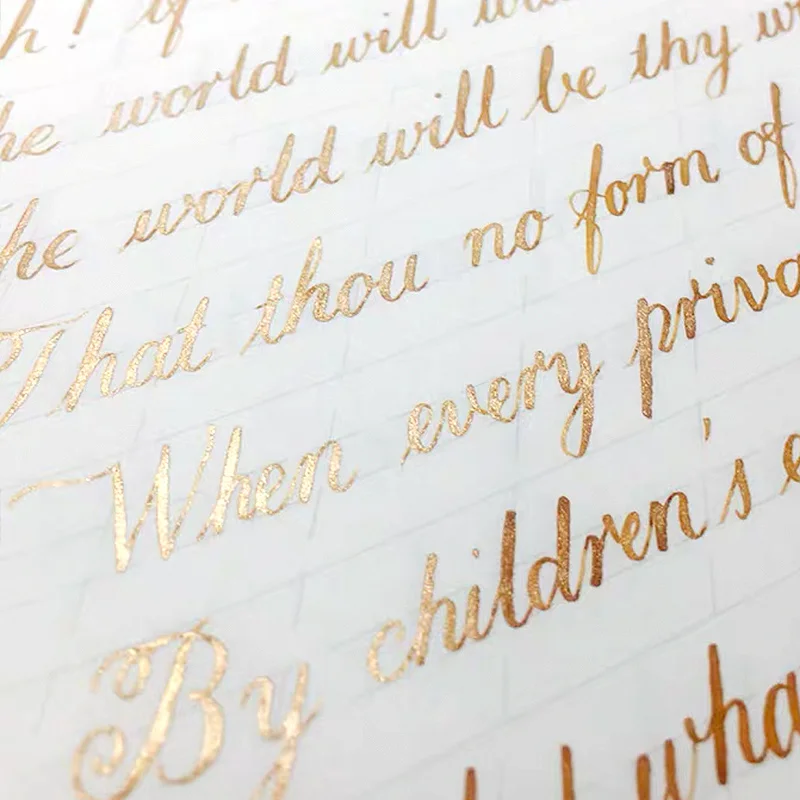 h! if
he world will
he world will be thy w
That thou no form of
When every priva
By children's e
wha